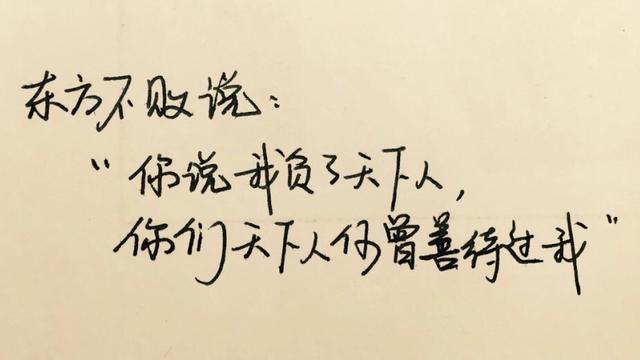 东方不败说：
“你说我负了天下人，
你们天下人何曾善待过我”